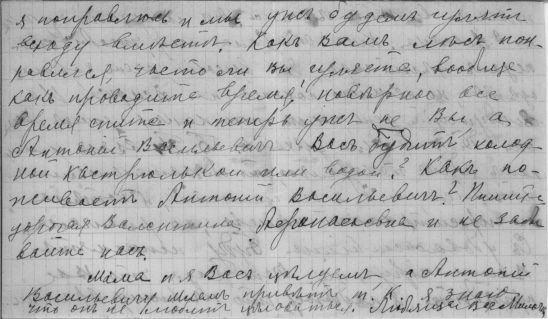 я поправлюсь и мы ужъ будемъ гулять
всюду вместѣ. Какъ Вамъ лѣсъ пон-
равился, часто ли Вы гуляете, вообще
какъ проводите время, навѣрное все
время спите и теперь ужъ не Вы а
Антоній Васильевичъ Васъ будитъ холод-
ной кастрюлькой или водой? Какъ по-
живаетъ Антоній Васильевичъ? Пишите
дорогая Валентина Афанасьевна и не забы-
вайте насъ.
Мама и я Васъ цѣлуемъ а Антонію
Васильевичу шлемъ привѣтъ т. к. я знаю
что онъ не любитъ цѣловаться. Любящая Васъ